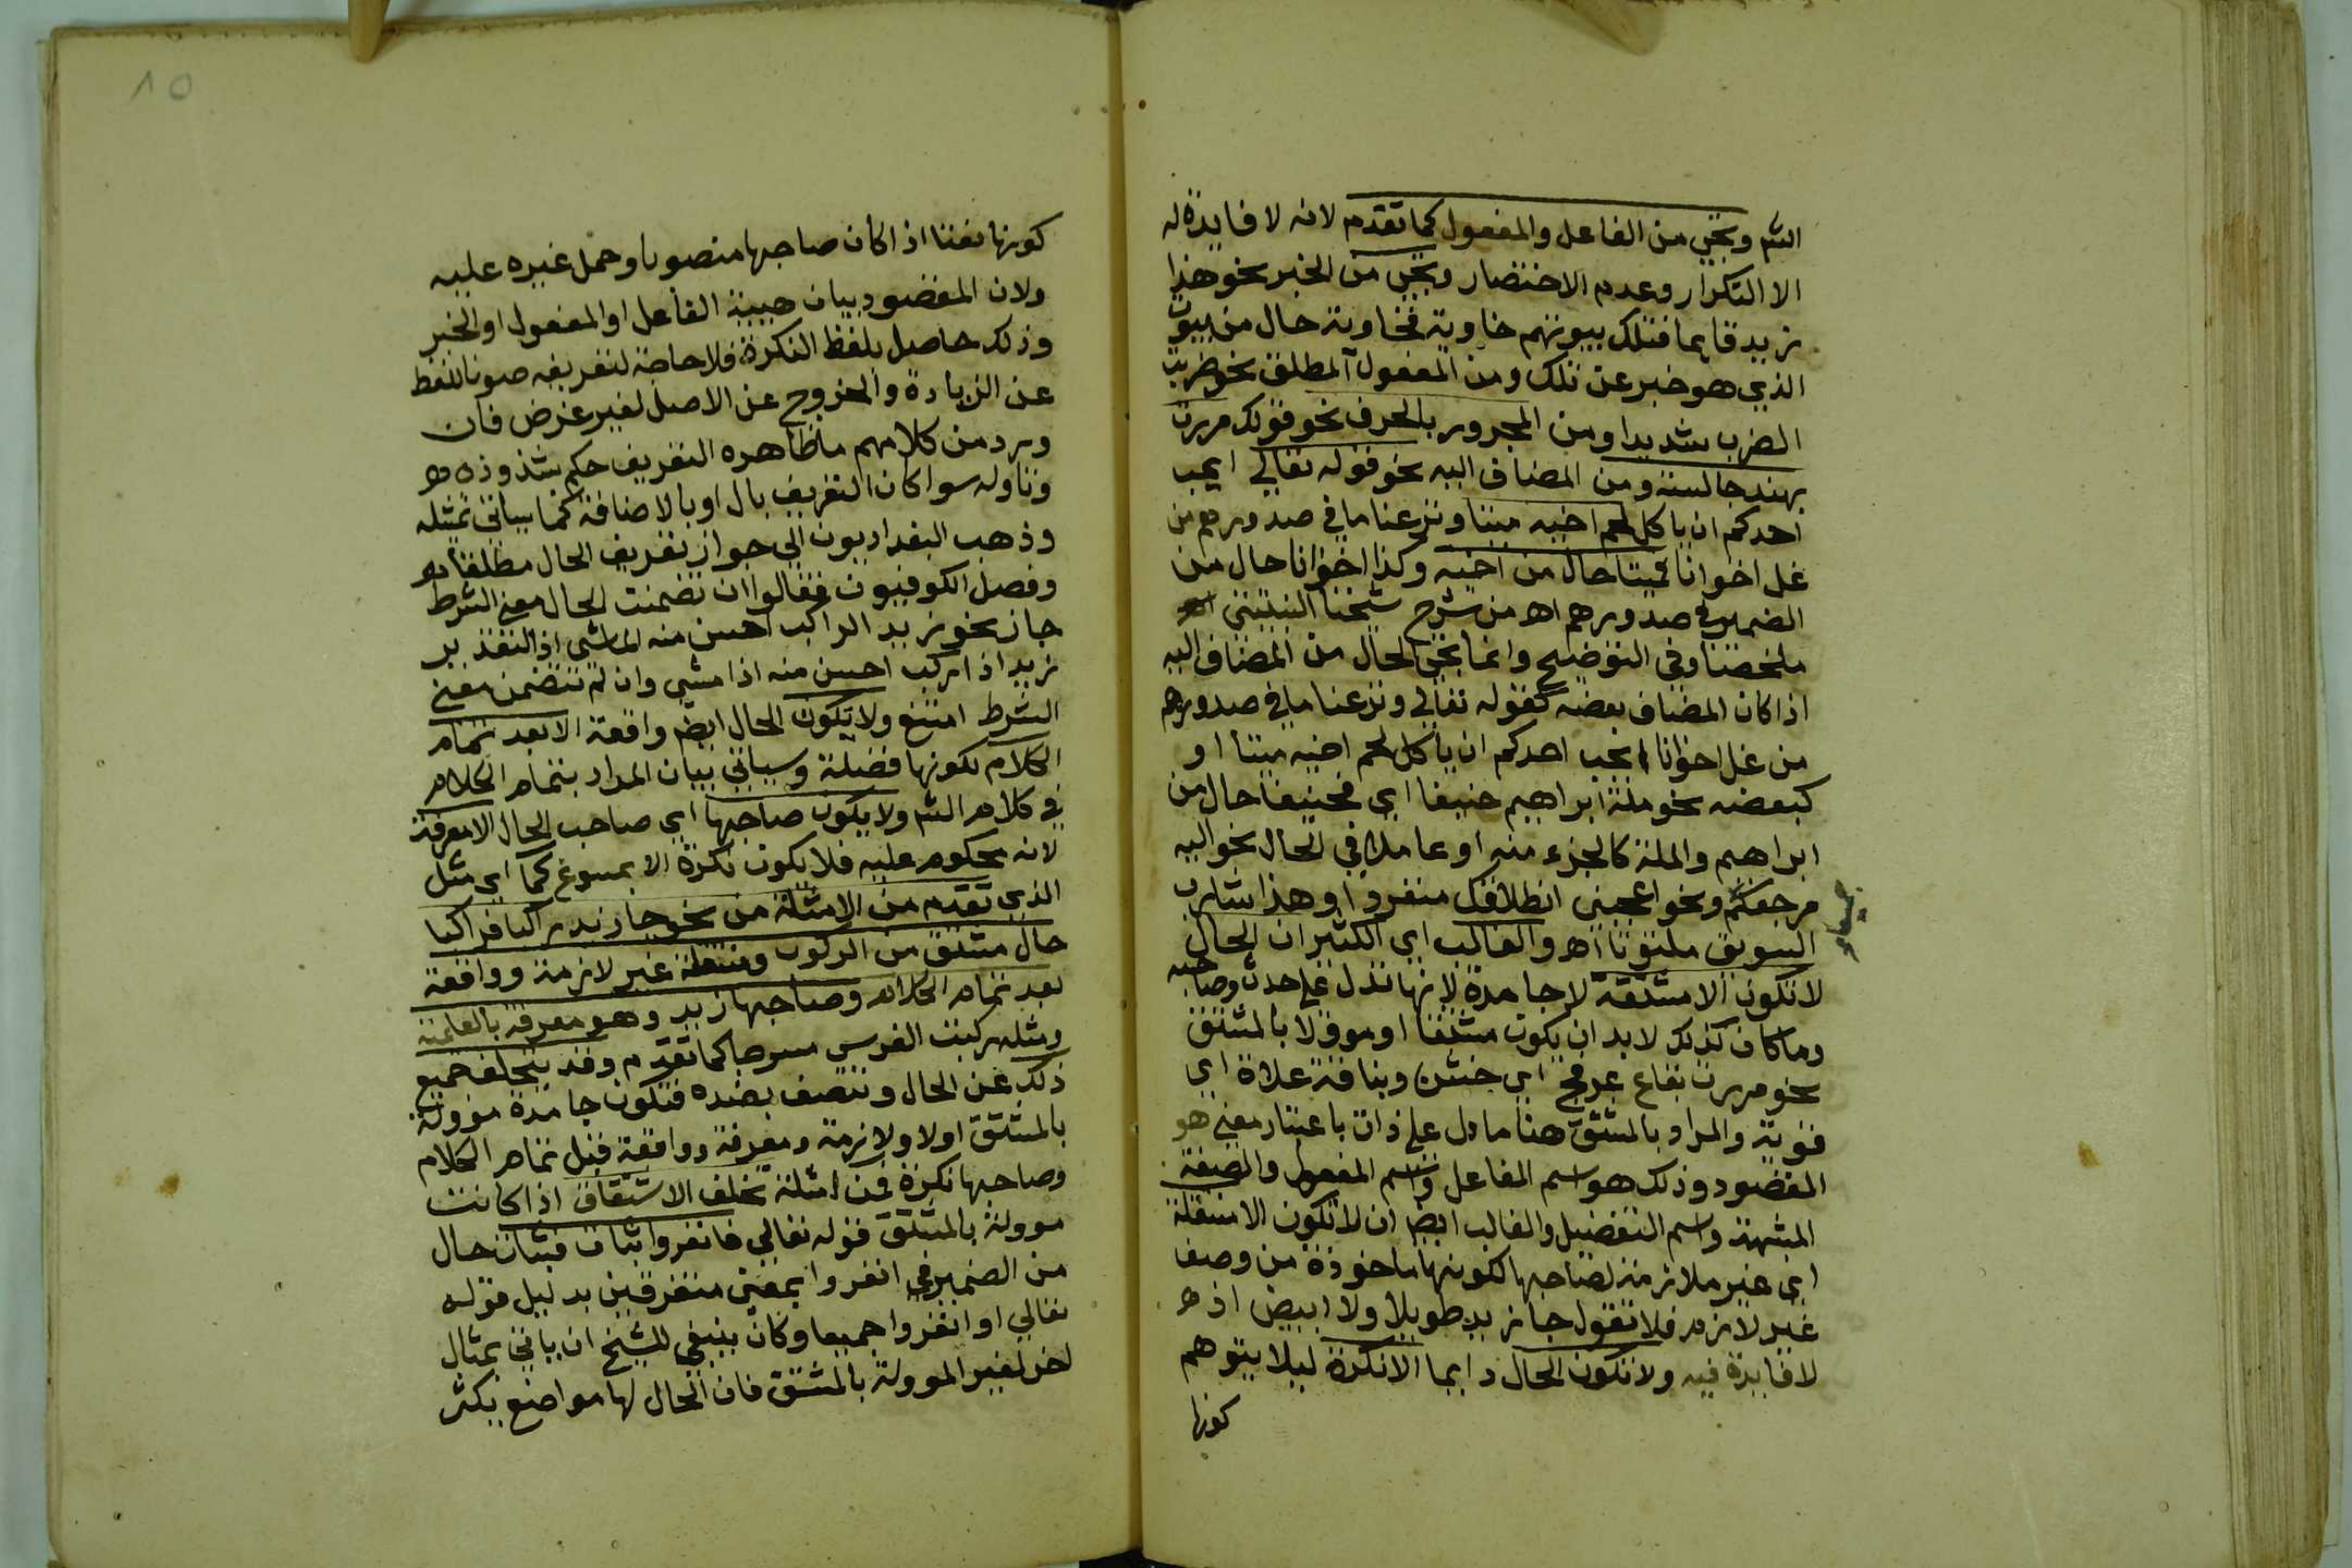 الشم وتجي من الفاعل والمفعول كما تقدم لانه لا فايدة له
الا التكرار وعدم الاختصار وتجي من الخبر نحو هذا
زيد قايما فتلك بيوتهم خاوية فخاوية حال من بيوت
الذي هو خبر عن تلك ومن المفعول المطلق نحو ضربت
الضرب شديدا ومن المجرور بالحرف نحو قولك مررت
بهند جالسة ومن المضاف اليه نحو قوله تعالي ايحب
احدكم ان ياكل لحم اخيه ميتا ونزعنا ما في صدورهم من
غل اخوانا فميتا حال من اخيه وكذا اخوانا حال من
الضمير في صدورهم اه من شرح شيخنا النبتيتي
ملخصا وفي التوضيح وانما تجي الحال من المضاف اليه
اذا كان المضاف بعضه كقوله تعالي ونزعنا ما في صدورهم
من غل اخوانا ايحب احدكم ان ياكل لحم اخيه ميتا او
كبعضه نحو ملة ابراهيم حنيفا اي فحنيفا حال من
ابراهيم والملة كالجزء منه او عاملا في الحال نحو اليه
مرجعكم ونحو اعجبني انطلاقك منفردا وهذا شارب
السويق ملتوتا اه والغالب اي الكثير ان الحال
لا تكون الا مشتقة لا جامدة لانها تدل علي حدث وصاحبه
وما كان كذلك لابد ان يكون مشتقا او موولا بالمشتق
نحو مررت بقاع عرفج اي خشن وبناقة علاة اي
قوية والمراد بالمشتق هنا ما دل علي ذات باعتبار معني هو
المقصود وذلك هو اسم الفاعل واسم المفعول والصفة
المشبهة واسم التفضيل والغالب ايضا ان لا تكون الا منتقلة
اي غير ملازمة لصاحبها لكونها ماخوذة من وصف
غير لازم فلا تقول جا زيد طويلا ولا ابيض اذ
لا فايدة فيه ولا تكون الحال دايما الا نكرة ليلا يتوهم
كونها
٨٥
كونها نعتا اذا كان صاحبها منصوبا وحمل غيره عليه
ولان المقصود بيان هيية الفاعل او المفعول او الخبر
وذلك حاصل بلفظ النكرة فلا حاجة لتعريفه صونا للفظ
عن الزيادة والخروج عن الاصل لغير غرض فان
ورد من كلامهم ما ظاهره التعريف حكم بشذوذه
وتاوله سوا كان التعريف بال او بالاضافة كما سياتي تمثيله
وذهب البغداديون الي جواز تعريف الحال مطلقا
وفصل الكوفيون فقالوا ان تضمنت الحال معني الشرط
جاز نحو زيد الراكب احسن منه الماشي اذ التقدير
زيد اذا ركب احسن منه اذا مشي وان لم تتضمن معني
الشرط امتنع ولا تكون الحال ايضا واقعة الا بعد تمام
الكلام لكونها فضلة وسياتي بيان المراد بتمام الكلام
في كلام الشم ولا يكون صاحبها اي صاحب الحال الا معرفة
لانه محكوم عليه فلا يكون نكرة الا بمسوغ كما اي مثل
الذي تقدم من الامثلة من نحو جا زيد راكبا فراكبا
حال مشتق من الركوب ومنتقلة غير لازمة وواقعة
بعد تمام الكلام وصاحبها زيد وهو معرفة بالعلمية
ومثله ركبت الفرس مسرجا كما تقدم وقد يتخلف جميع
ذلك عن الحال وتتصف بضده فتكون جامدة موولة
بالمشتق اولا ولازمة ومعرفة وواقعة قبل تمام الكلام
وصاحبها نكرة فمن امثلة تخلف الاشتقاق اذا كانت
موولة بالمشتق قوله تعالي فانفروا ثبات فثبات حال
من الضمير في انفروا بمعني متفرقين بدليل قوله
تعالي او انفروا جميعا وكان ينبغي للشيخ ان ياتي بمثال
اخر لغير الموولة بالمشتق فان الحال لها مواضع يكثر